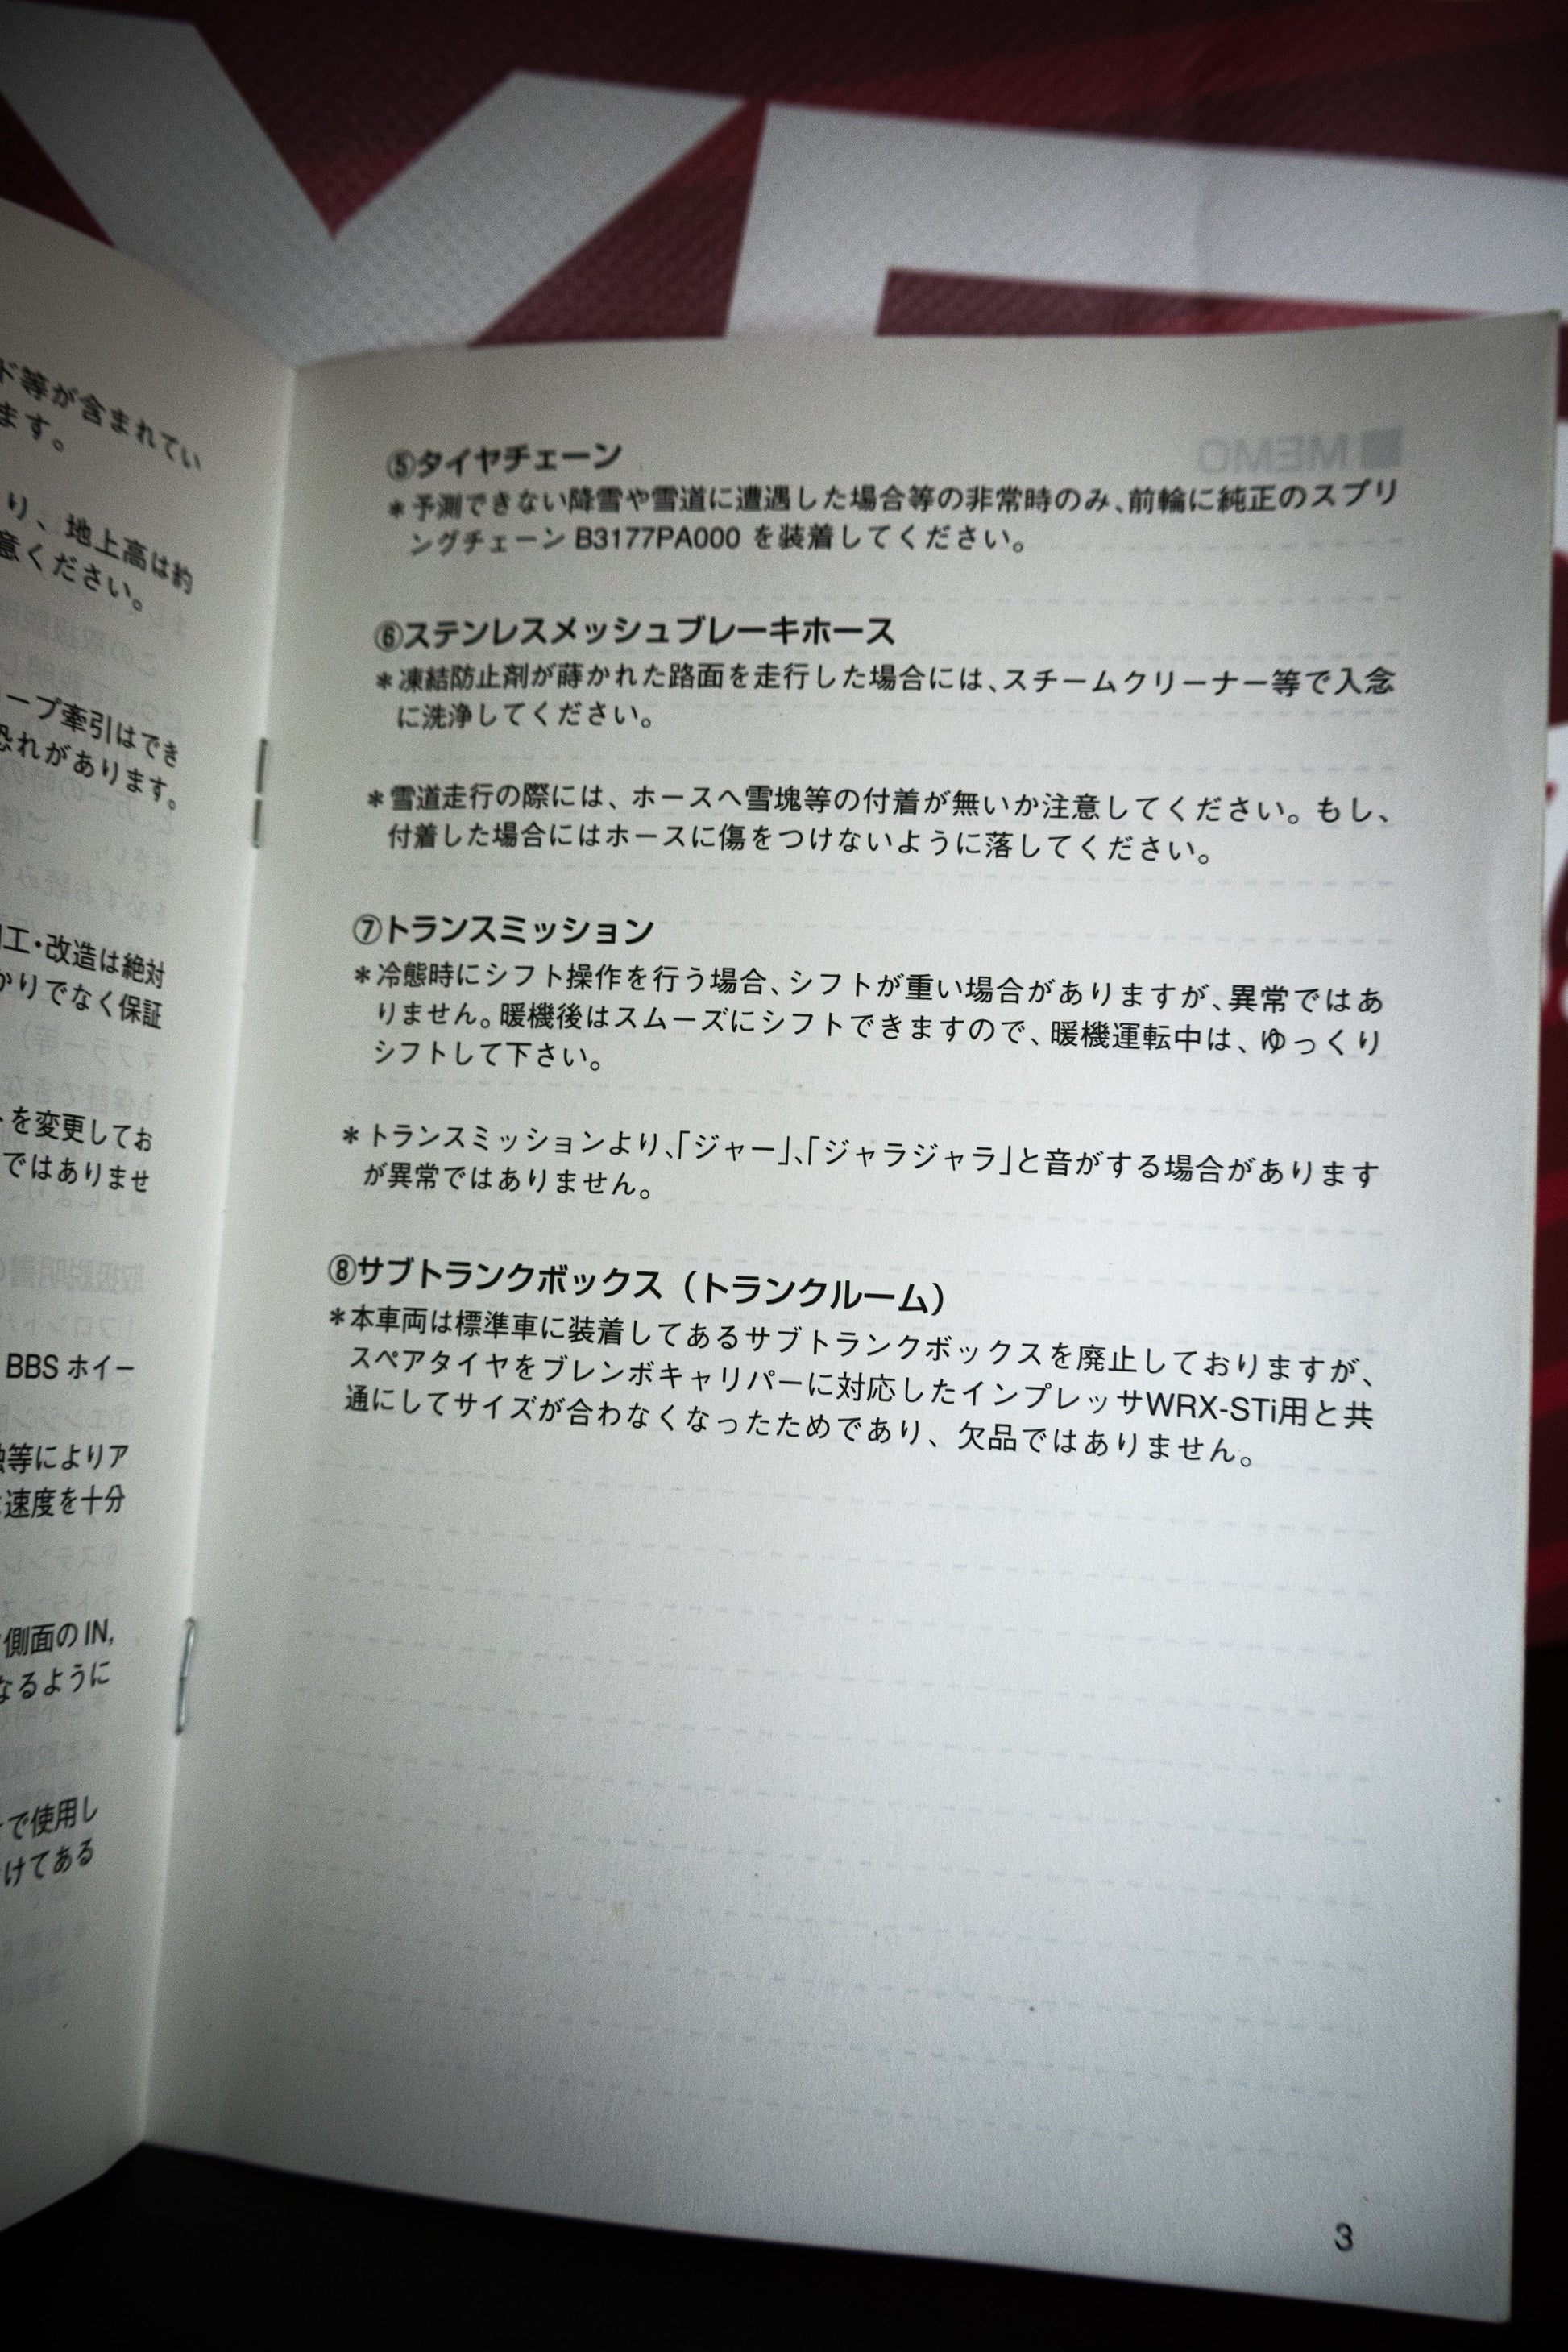 ド等が含まれてい
ます。
り、地上高は約
意ください。
ープ牽引はでき
恐れがあります。
工・改造は絶対
かりでなく保証
を変更してお
ではありませ
BBS ホイー
等によりア
速度を十分
側面の IN,
なるように
で使用し
けてある
MEMO
⑤タイヤチェーン
＊予測できない降雪や雪道に遭遇した場合等の非常時のみ、前輪に純正のスプリ
ングチェーン B3177PA000 を装着してください。
⑥ステンレスメッシュブレーキホース
＊凍結防止剤が蒔かれた路面を走行した場合には、スチームクリーナー等で入念
に洗浄してください。
＊雪道走行の際には、ホースへ雪塊等の付着が無いか注意してください。もし、
付着した場合にはホースに傷をつけないように落してください。
⑦トランスミッション
＊冷態時にシフト操作を行う場合、シフトが重い場合がありますが、異常ではあ
りません。暖機後はスムーズにシフトできますので、暖機運転中は、ゆっくり
シフトして下さい。
＊トランスミッションより、「ジャー」、「ジャラジャラ」と音がする場合があります
が異常ではありません。
⑧サブトランクボックス（トランクルーム）
＊本車両は標準車に装着してあるサブトランクボックスを廃止しておりますが、
スペアタイヤをブレンボキャリパーに対応したインプレッサWRX-STi用と共
通にしてサイズが合わなくなったためであり、欠品ではありません。
3